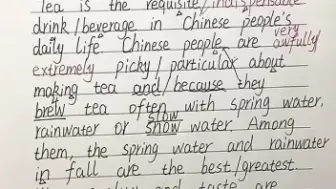 Tea is the requisite/indispensable
drink/beverage in Chinese people's
daily life. Chinese people are very awfully/
extremely picky/particular about
making tea and/because they
brew tea often with spring water,
rainwater or slow snow water. Among
them, the spring water and rainwater
in fall are the best/greatest.
and taste are